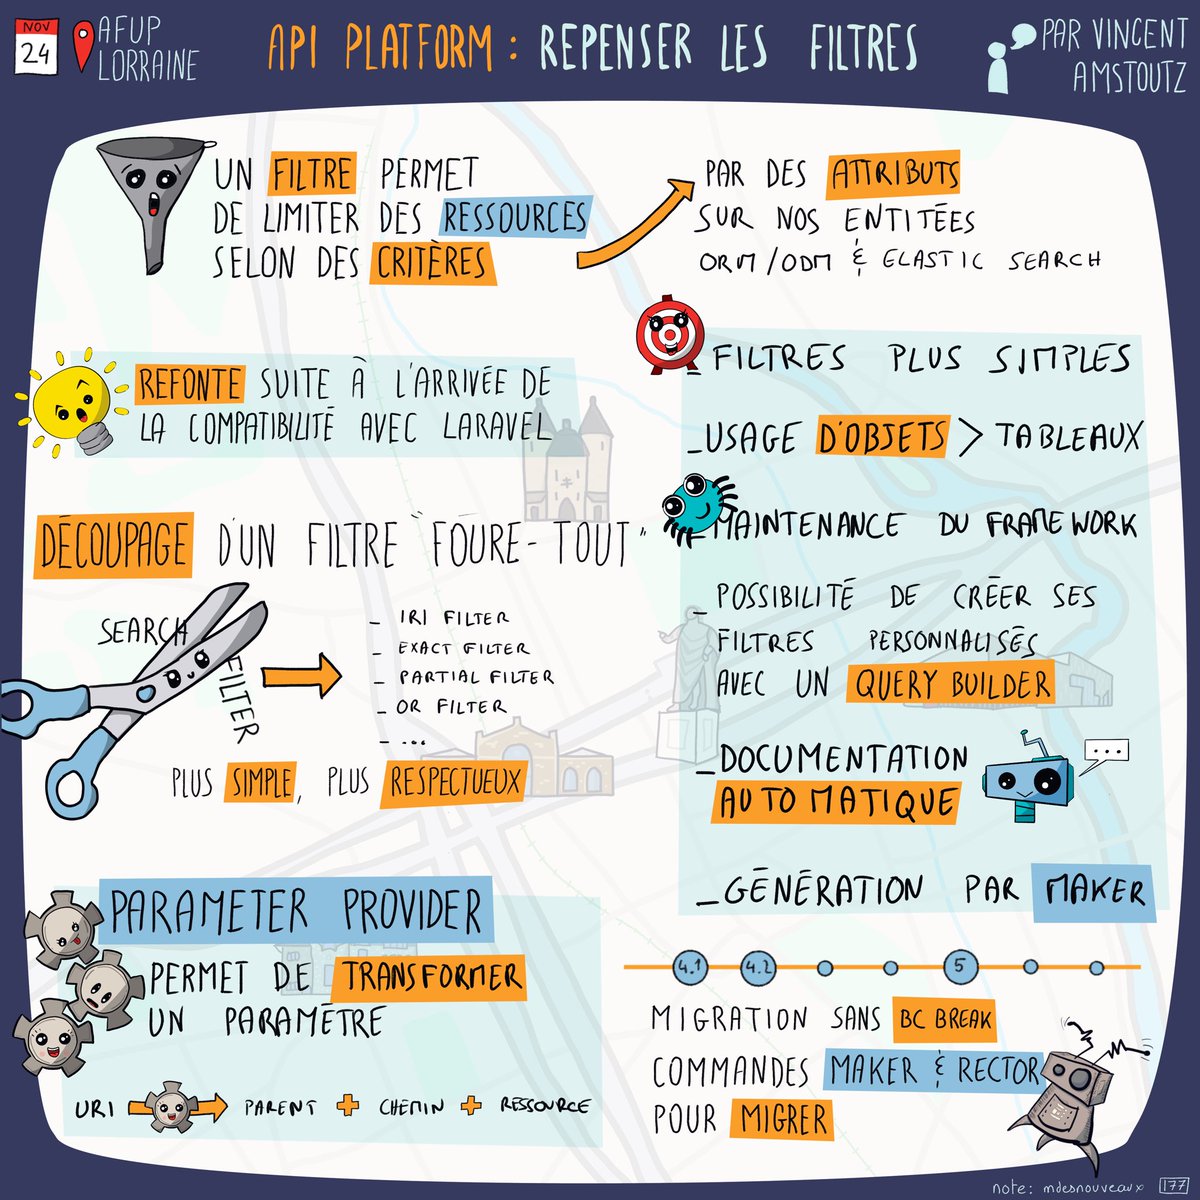 NOV
24
AFUP
LORRAINE
API PLATFORM : REPENSER LES FILTRES
PAR VINCENT
AMSTOUTZ
UN FILTRE PERMET
DE LIMITER DES RESSOURCES
SELON DES CRITÈRES
PAR DES ATTRIBUTS
SUR NOS ENTITÉES
ORM/ODM & ELASTIC SEARCH
REFONTE SUITE À L'ARRIVÉE DE
LA COMPATIBILITÉ AVEC LARAVEL
_ FILTRES PLUS SIMPLES
_ USAGE D'OBJETS > TABLEAUX
_ MAINTENANCE DU FRAMEWORK
_ POSSIBILITÉ DE CRÉER SES
FILTRES PERSONNALISÉS
AVEC UN QUERY BUILDER
_ DOCUMENTATION
AUTOMATIQUE
...
_ GÉNÉRATION PAR MAKER
DÉCOUPAGE D'UN FILTRE "FOURE-TOUT"
SEARCH
FILTER
_ IRI FILTER
_ EXACT FILTER
_ PARTIAL FILTER
_ OR FILTER
_ ...
PLUS SIMPLE, PLUS RESPECTUEUX
PARAMETER PROVIDER
PERMET DE TRANSFORMER
UN PARAMÈTRE
URI → PARENT + CHEMIN + RESSOURCE
4.1 4.2 5
MIGRATION SANS BC BREAK
COMMANDES MAKER & RECTOR
POUR MIGRER
note: mdesnouveaux 177